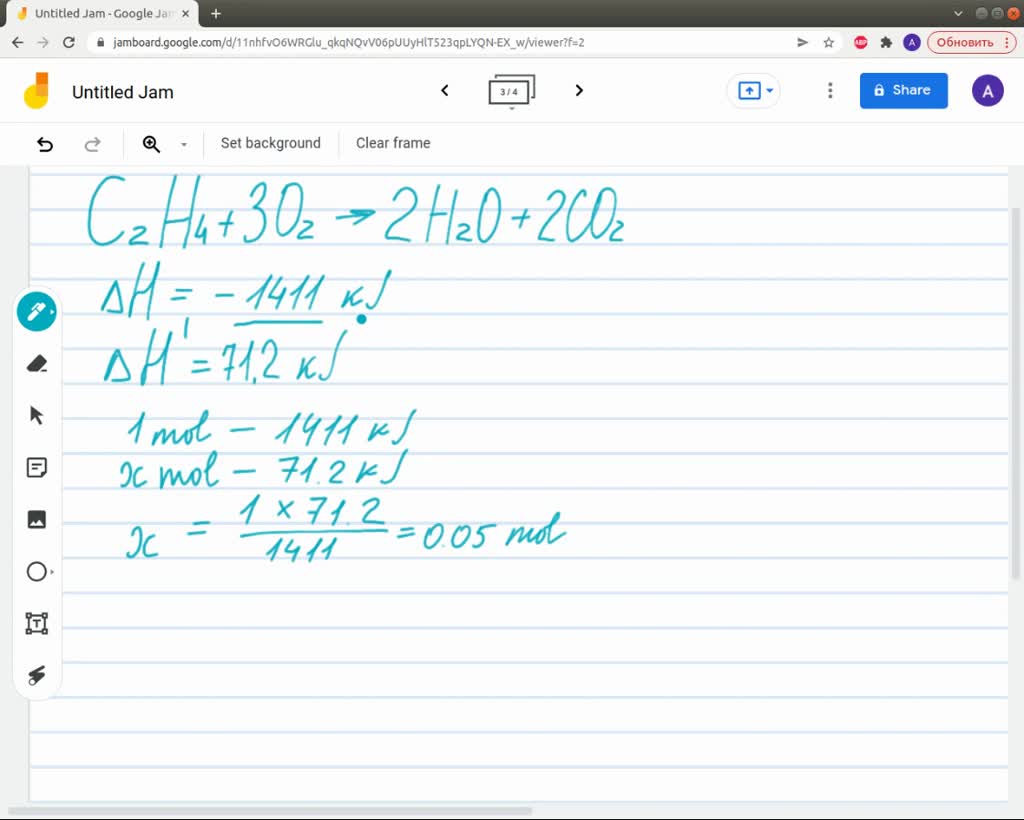 Untitled Jam - Google Jam
jamboard.google.com/d/11nhfvO6WRGlu_qkqNQvV06pUUyHlT523qpLYQN-EX_w/viewer?f=2
ABP
A
Обновить
Untitled Jam
3 / 4
Share
A
Set background
Clear frame
C₂H₄+3O₂→2H₂O+2CO₂
ΔH = -1411 кJ
ΔH' = 71,2 кJ
1 mol - 1411 кJ
x mol - 71.2 кJ
x = 1 × 71.2 / 1411 = 0.05 mol
T